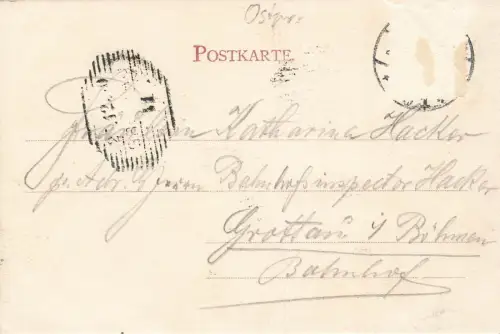 Ostpr.
POSTKARTE
Fräulein Katharina Hacker
p. Adr. Herrn Bahnhofinspector Hacker
Grottau i/ Böhmen
Bahnhof